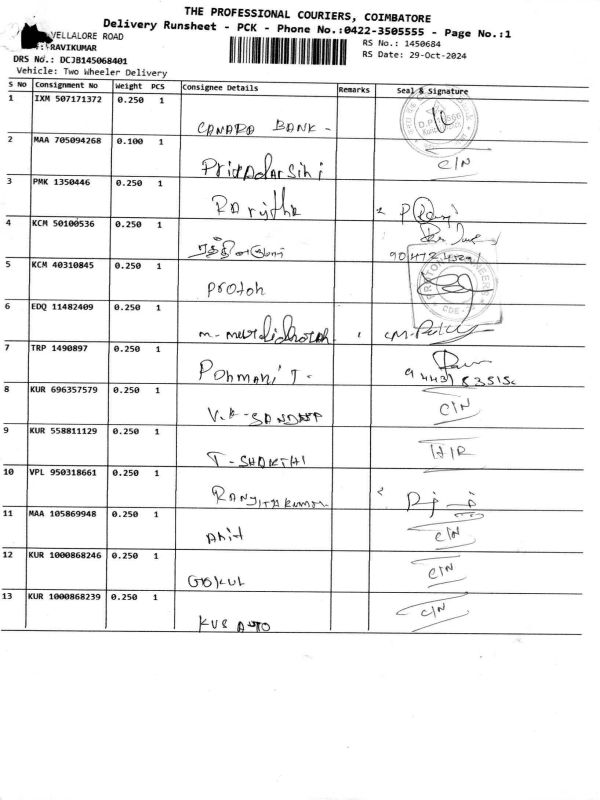 THE PROFESSIONAL COURIERS, COIMBATORE
Delivery Runsheet - PCK - Phone No.:0422-3505555 - Page No.:1
VELLALORE ROAD
RAVIKUMAR
RS No.: 1450684
DRS No.: DCJB145068401
RS Date: 29-Oct-2024
Vehicle: Two Wheeler Delivery
S No Consignment No Weight PCS Consignee Details Remarks Seal & Signature
1 IXM 507171372 0.250 1
CANARA BANK -
2 MAA 705094268 0.100 1
C/N
Priyadarsini
3 PMK 1350446 0.250 1
Ranjitha
4 KCM 50100536 0.250 1
5 KCM 40310845 0.250 1
Proton
6 EDQ 11482409 0.250 1
7 TRP 1490897 0.250 1
Ponmani T.
8 KUR 696357579 0.250 1
C/N
V.K-SANDEEP
9 KUR 558811129 0.250 1
H/R
T-SHAKTHI
10 VPL 950318661 0.250 1
11 MAA 105869948 0.250 1
C/N
Anit
12 KUR 1000868246 0.250 1
C/N
GOKUL
13 KUR 1000868239 0.250 1
C/N
KVS AUTO